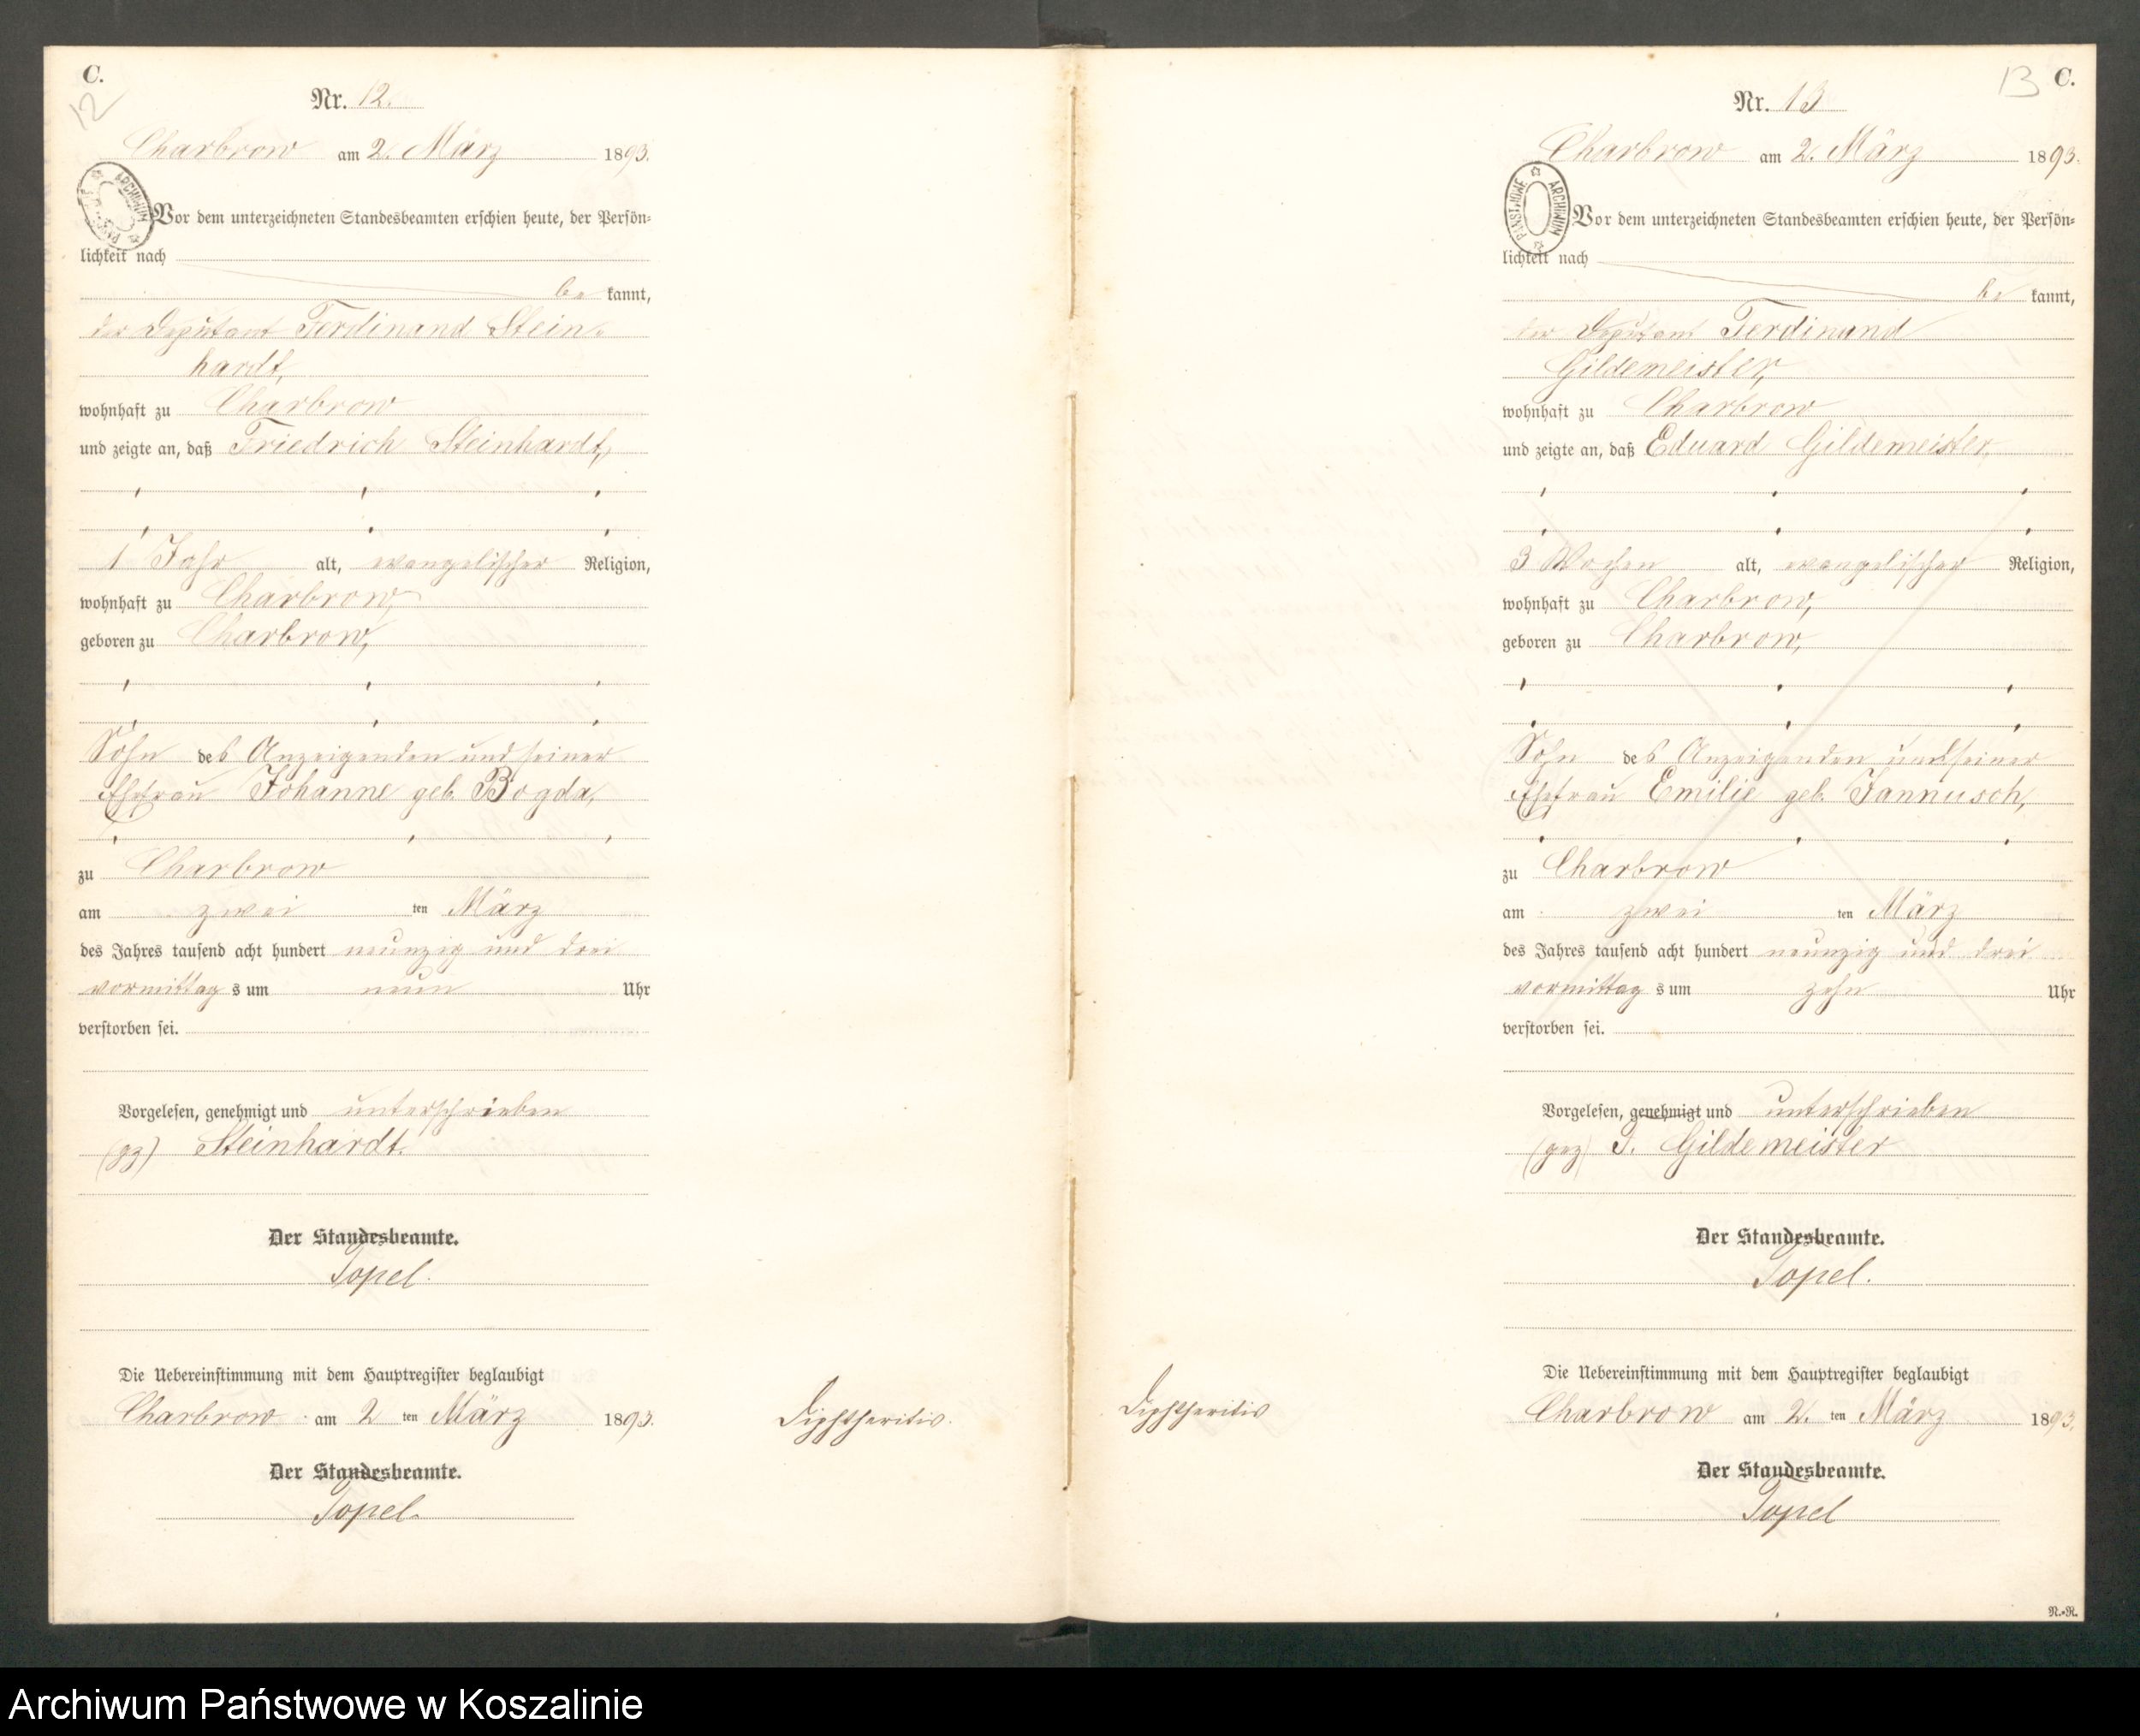 C.
12
Nr. 12.
Charbrow am 2. März 1893.
Vor dem unterzeichneten Standesbeamten erschien heute, der Persön-
lichkeit nach
be kannt,
der Deputant Ferdinand Stein-
hardt,
wohnhaft zu Charbrow
und zeigte an, daß Friedrich Steinhardt,
1 Jahr alt, evangelischer Religion,
wohnhaft zu Charbrow,
geboren zu Charbrow,
Sohn des Anzeigenden und seiner
Ehefrau Johanne geb. Bogda,
zu Charbrow
am zwei ten März
des Jahres tausend acht hundert neunzig und drei
vormittag s um neun Uhr
verstorben sei.
Vorgelesen, genehmigt und unterschrieben
(gz) Steinhardt.
Der Standesbeamte.
Topel.
Die Uebereinstimmung mit dem Hauptregister beglaubigt
Charbrow am 2 ten März 1893.
Der Standesbeamte.
Topel.
Diphtheritis.
ARCHIWUM PAŃSTWOWE
13 C.
Nr. 13
Charbrow am 2. März 1893.
Vor dem unterzeichneten Standesbeamten erschien heute, der Persön-
lichkeit nach
be kannt,
der Deputant Ferdinand
Gildemeister,
wohnhaft zu Charbrow
und zeigte an, daß Eduard Gildemeister,
3 Wochen alt, evangelischer Religion,
wohnhaft zu Charbrow,
geboren zu Charbrow,
Sohn des Anzeigenden und seiner
Ehefrau Emilie geb. Jannusch,
zu Charbrow
am zwei ten März
des Jahres tausend acht hundert neunzig und drei
vormittag s um zehn Uhr
verstorben sei.
Vorgelesen, genehmigt und unterschrieben
(gez) F. Gildemeister
Der Standesbeamte.
Topel.
Die Uebereinstimmung mit dem Hauptregister beglaubigt
Charbrow am 2. ten März 1893.
Der Standesbeamte.
Topel
Diphtheritis
ARCHIWUM PAŃSTWOWE
N.-R.
Archiwum Państwowe w Koszalinie